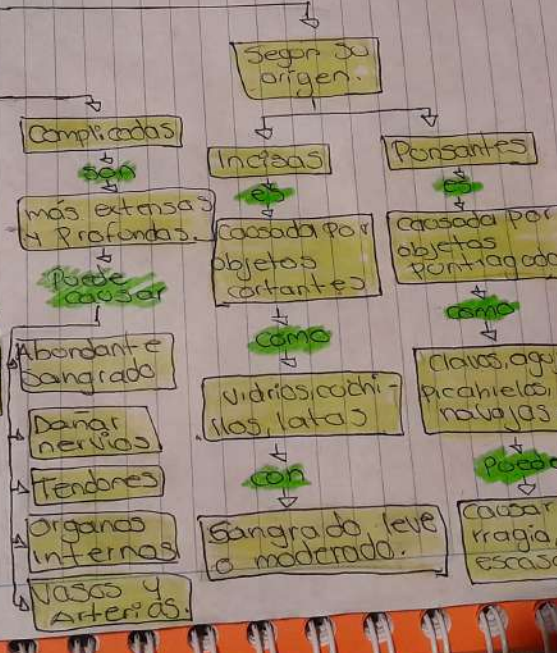 Segun su
origen.
Complicadas
son
más extensas
y Profundas.
Puede
causar
Abundante
Sangrado
Dañar
nervios
Tendones
organos
internas
Vasos y
Arterias.
Incisas
es
causada por
objetos
cortantes
como
vidrios, cochi-
llos, latas
con
Sangrado leve
o moderado.
Ponsantes
es
causada por
objetos
como
Clavos,
Picahielos,
navajas
Puede
causar